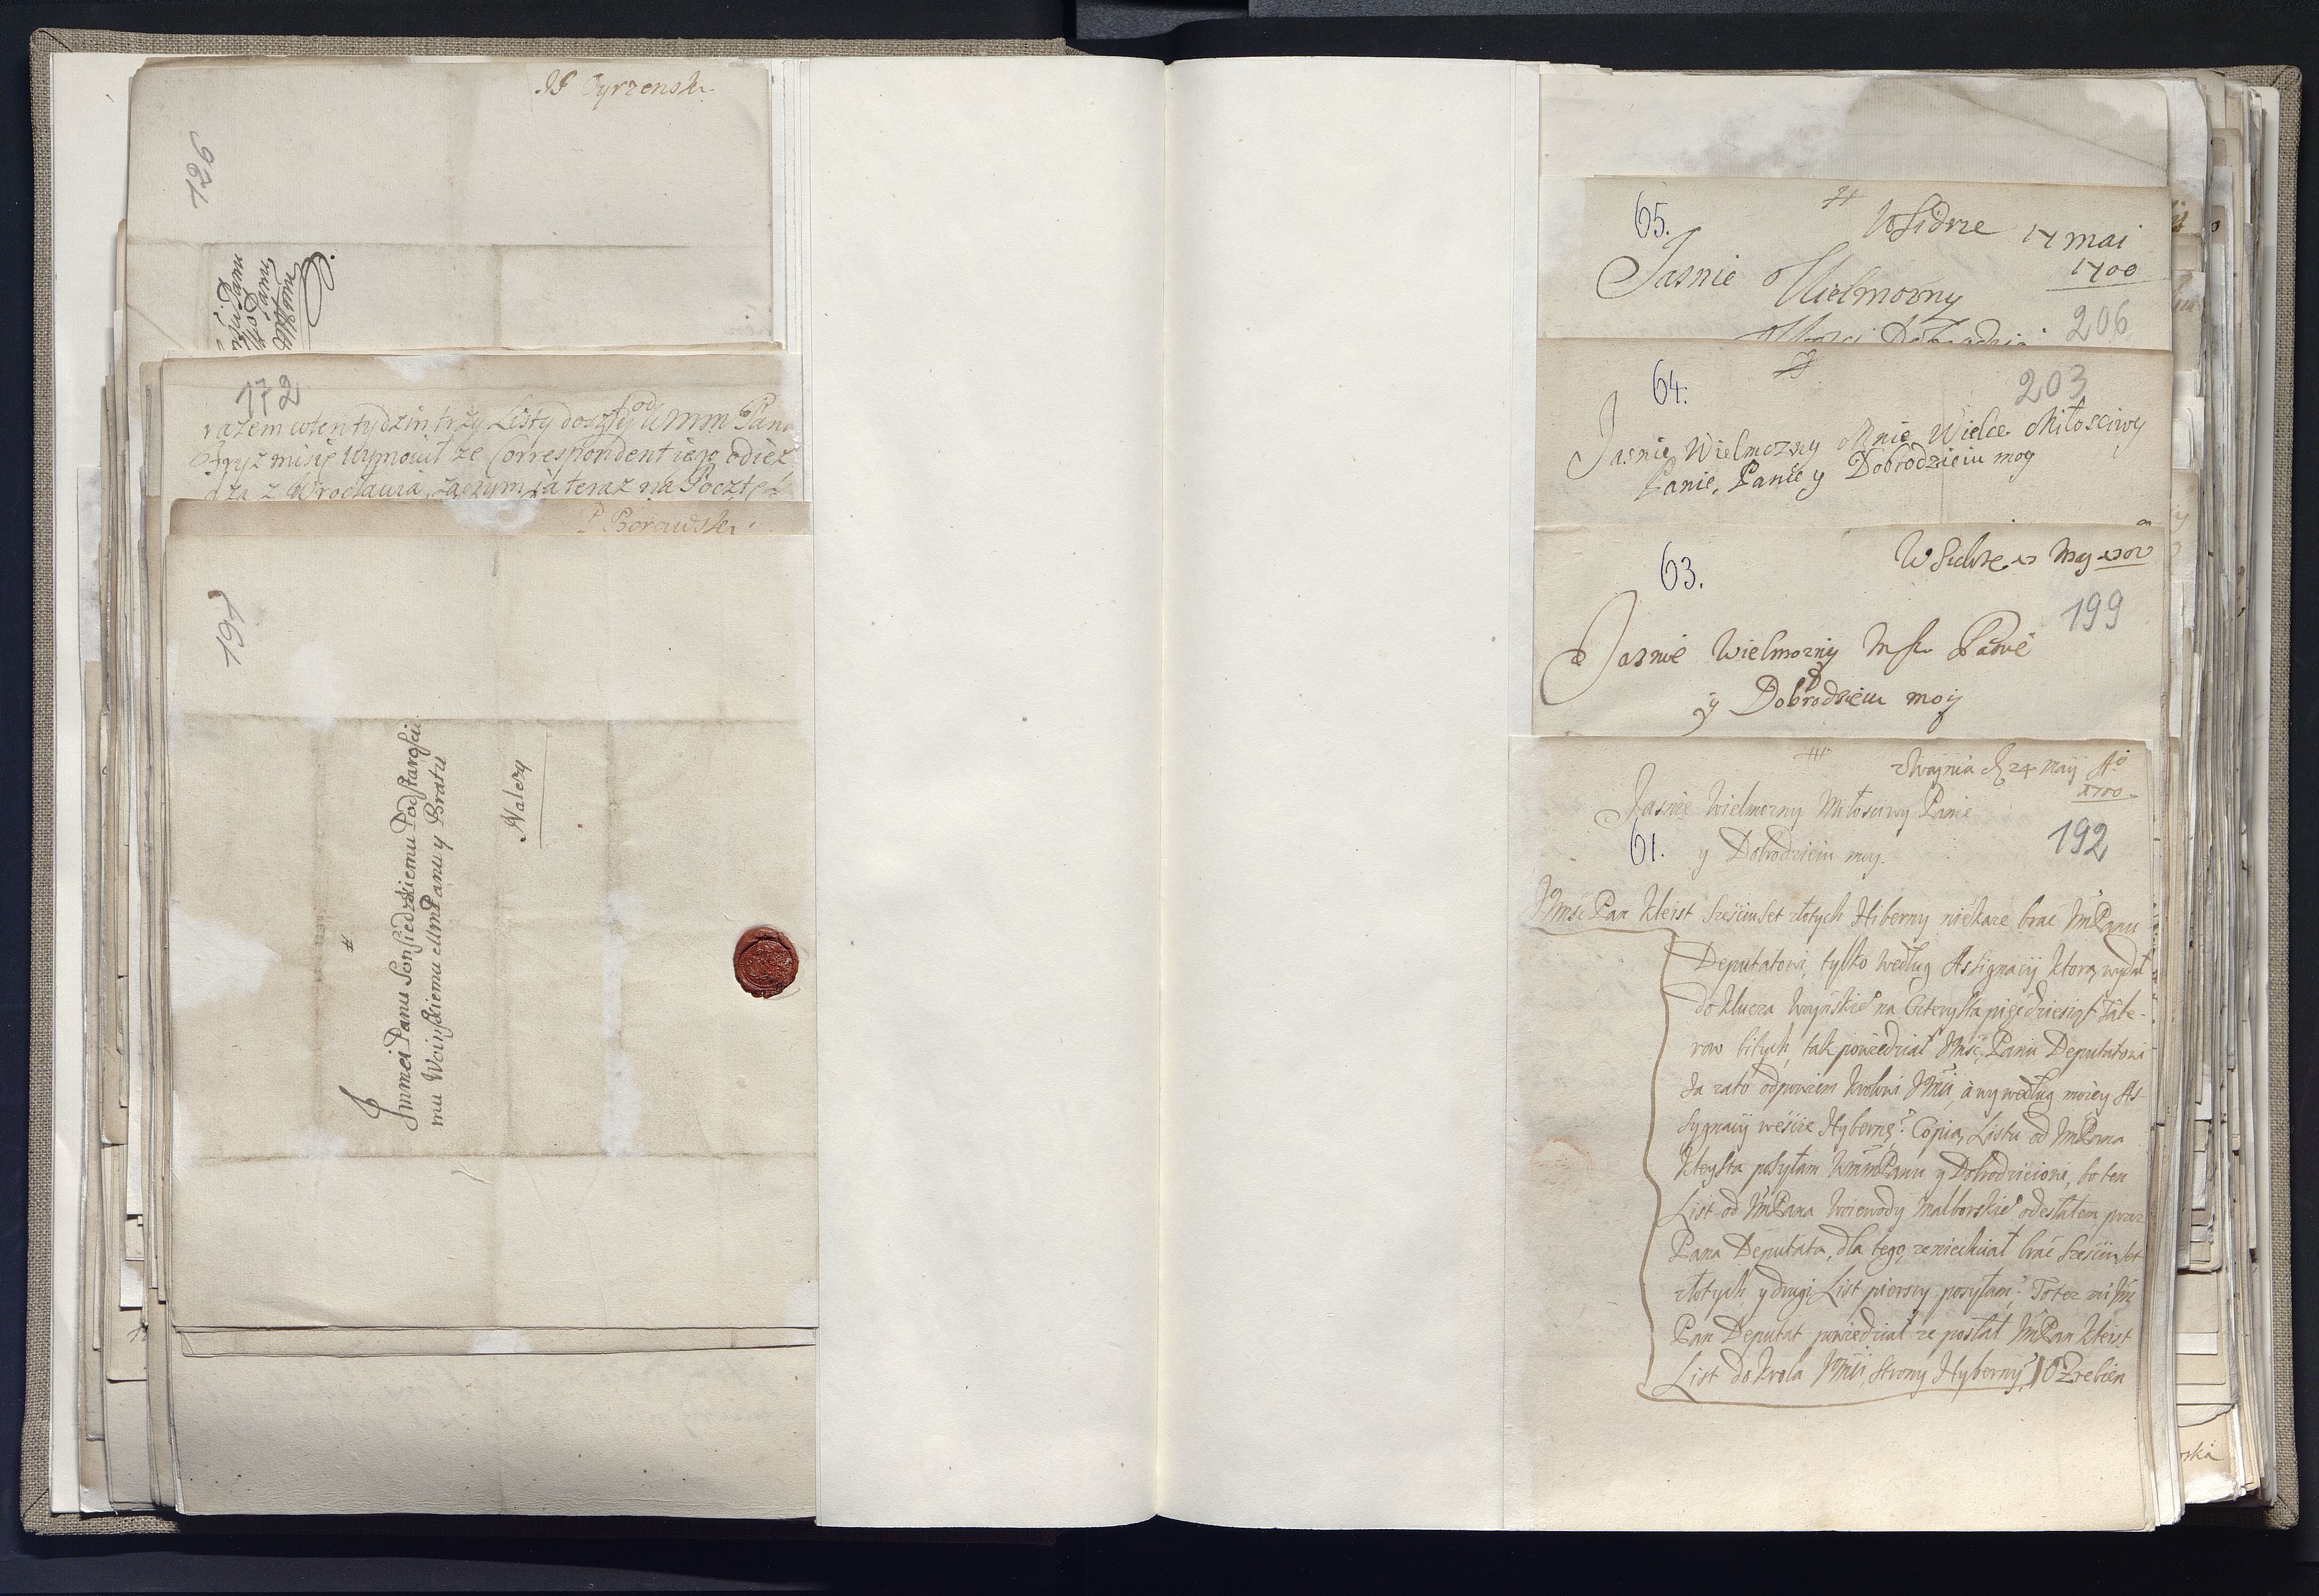 126
172
razem wten tydzin trzy Listy doszły od WMM Pana
Gryż misię wymowił ze Correspondent iego odież
dza z Wrocławia, zaczym ja teraz na Pocztę
P Borawski
191
Jmmci Panu Sonsiedzkiemu Podstarosciemu
mu Woinskiemu Panu y Bratu
Należy
65.
WSidrze 17 mai
1700
Jasnie Wielmozny
206
64.
203
Jasnie Wielmozny Mnie Wielce Miłosciwy
Panie, Panie y Dobrodzieiu moy
63.
199
Jasnie Wielmozny Panie
y Dobrodzieiu moy
zWaynia D 24 Maij Aō
1700
Jasnie Wielmozny Miłosciwy Panie
61. y Dobrodzieiu moy.
192
Jmsc Pan Kleist szesciuset złotych Hiberny niekaze brac JmPanu
Deputatowi, tylko według Assignacij ktorą wydał
do klucza Woynskie na czterysta pięcdziesiąt Tale-
row bitych, tak powiedział Jmsc Panu Deputatowi
Ja zato odpowiem Krolowi Jmci, a wy według mojey As-
sygnacij weście Hybernę. Copią Listu od JmPana
Kleysta posyłam WmmPanu y Dobrodzieiowi, bo ten
List od JmPana Woiewody Malborskie odesłałem przez
Pana Deputata, dla tego ze niechciał brac szesciuset
złotych y drugi List pierszy posyłam. Totez mi Jm
Pan Deputat powiedział ze posłał JmPan Kleist
List do Krola Jmci, strony Hyberny, O Zrebien